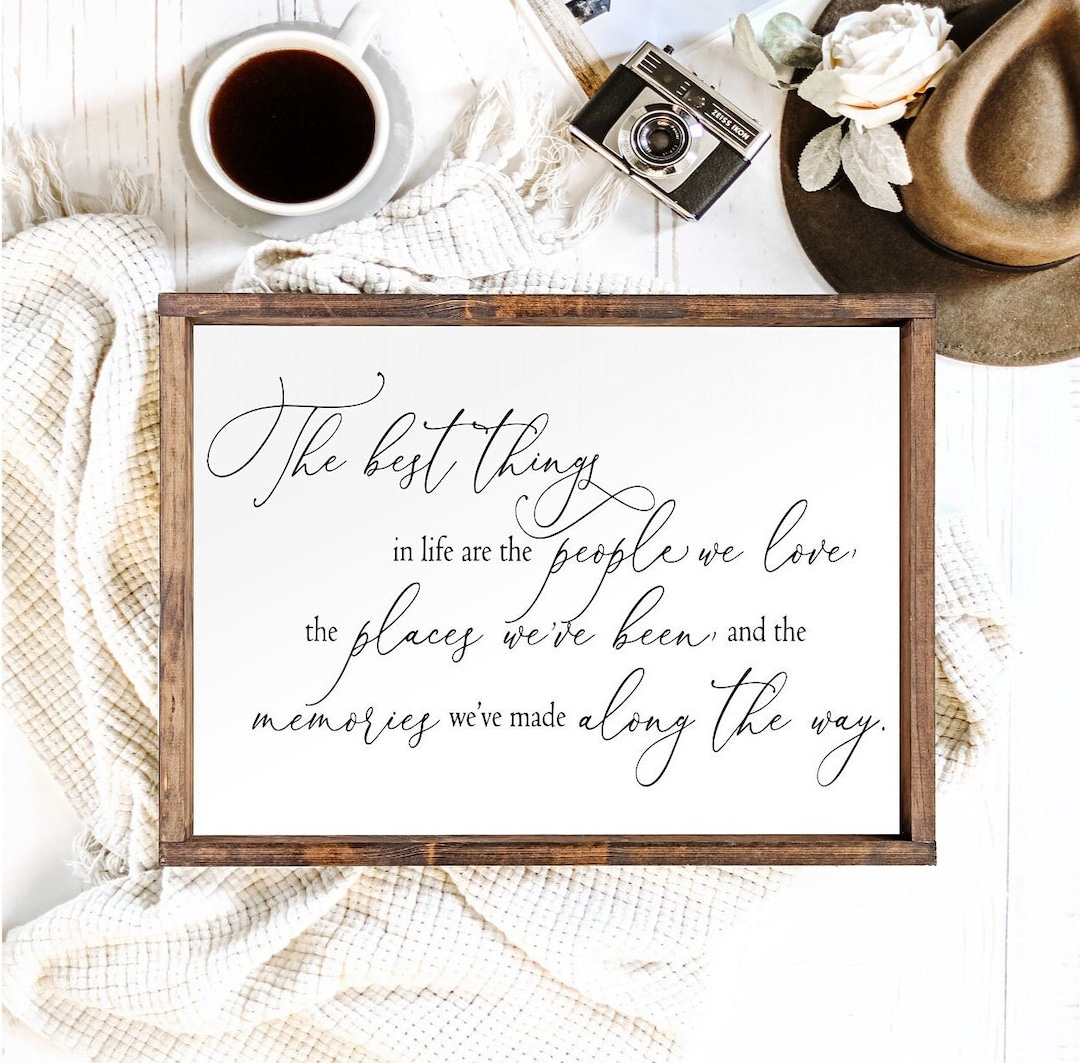 ZEISS IKON
The best things
in life are the people we love,
the places we've been, and the
memories we've made along the way.